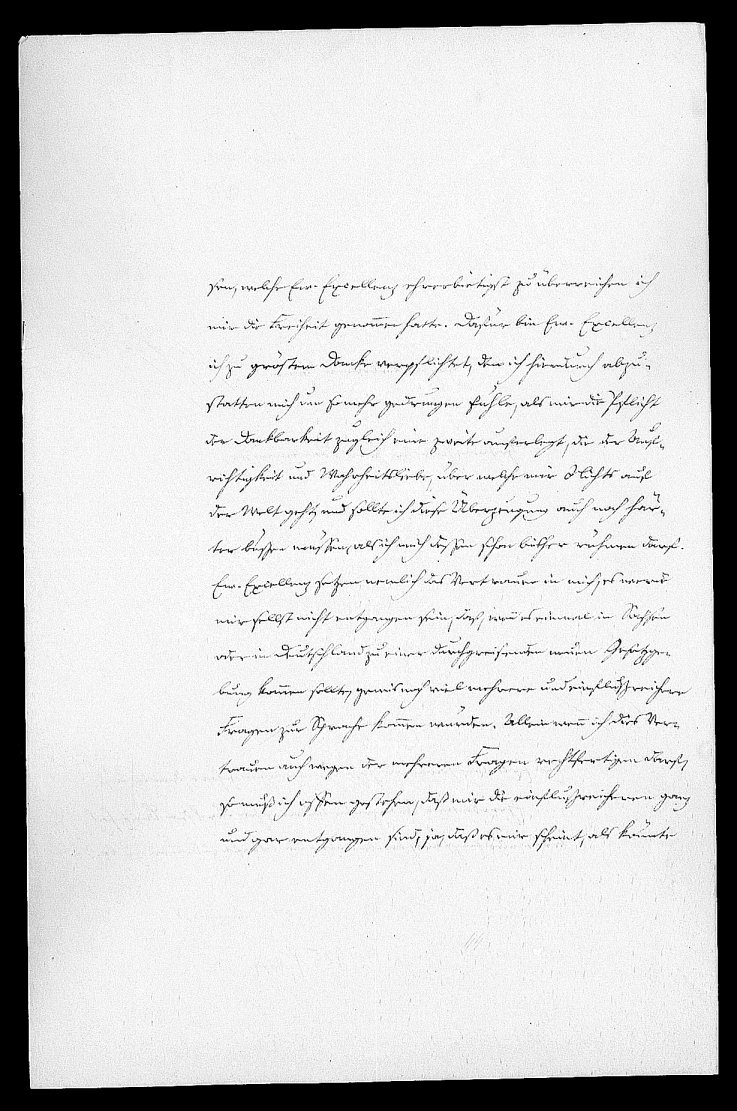 sen, welche Ew. Excellenz ehrerbietigst zu überreichen ich
mir die Freiheit genommen hatte. Dafür bin Ew. Excellenz
ich zu gröstem Danke verpflichtet, den ich hierdurch abzu-
statten mich um so mehr gedrungen fühle, als mir die Pflicht
der Dankbarkeit zugleich eine zweite auferlegt, die der Auf-
richtigkeit und Wahrheitsliebe, über welche mir Nichts auf
der Welt geht, und sollte ich diese Überzeugung auch noch här-
ter büssen müssen, als ich mich dessen schon bisher rühmen darf.
Ew. Excellenz setzen nemlich das Vertrauen in mich, es werde
mir selbst nicht entgangen sein, daß, wenn es einmal in Sachsen
oder in Deutschland zu einer durchgreifenden neuen Gesetzge-
bung kommen sollte, gewis noch viel mehrere und einflußreichere
Fragen zur Sprache kommen würden. Allein wenn ich dies Ver-
trauen auch wegen der mehreren Fragen rechtfertigen darf,
so muß ich offen gestehen, daß mir die einflußreicheren ganz
und gar entgangen sind, ja, daß es mir scheint, als könnte